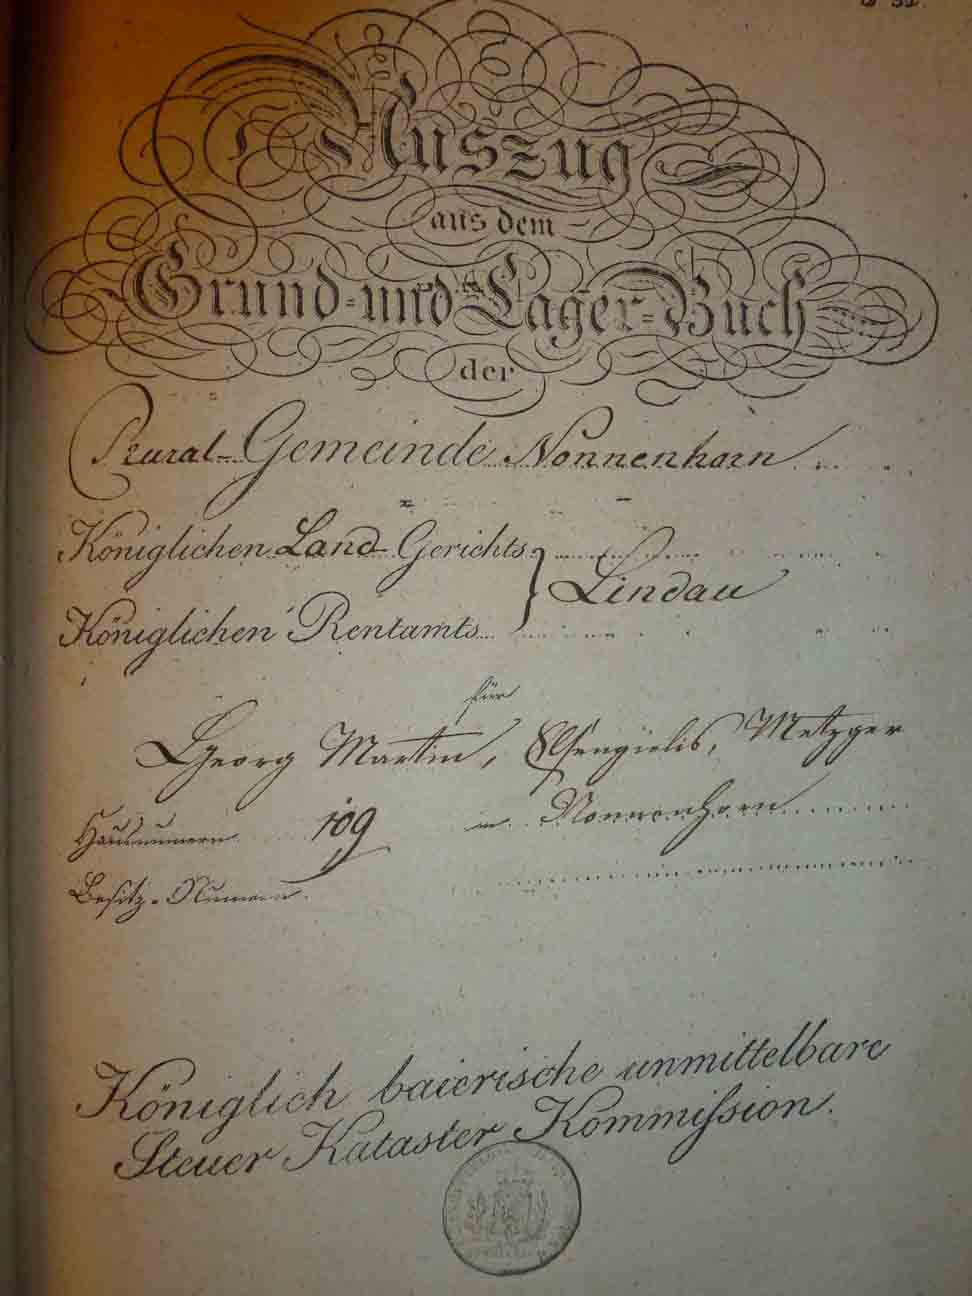 Auszug
aus dem
Grund- und Lager-Buch
der
Rural-Gemeinde Nonnenhorn
Königlichen Land-Gerichts
Lindau
Königlichen Rentamts
für
Georg Martin, Metzger
Hausnumern 109 in Nonnenhorn
Besitz-Numern
Königlich baierische unmittelbare
Steuer Kataster Kommiſsion.